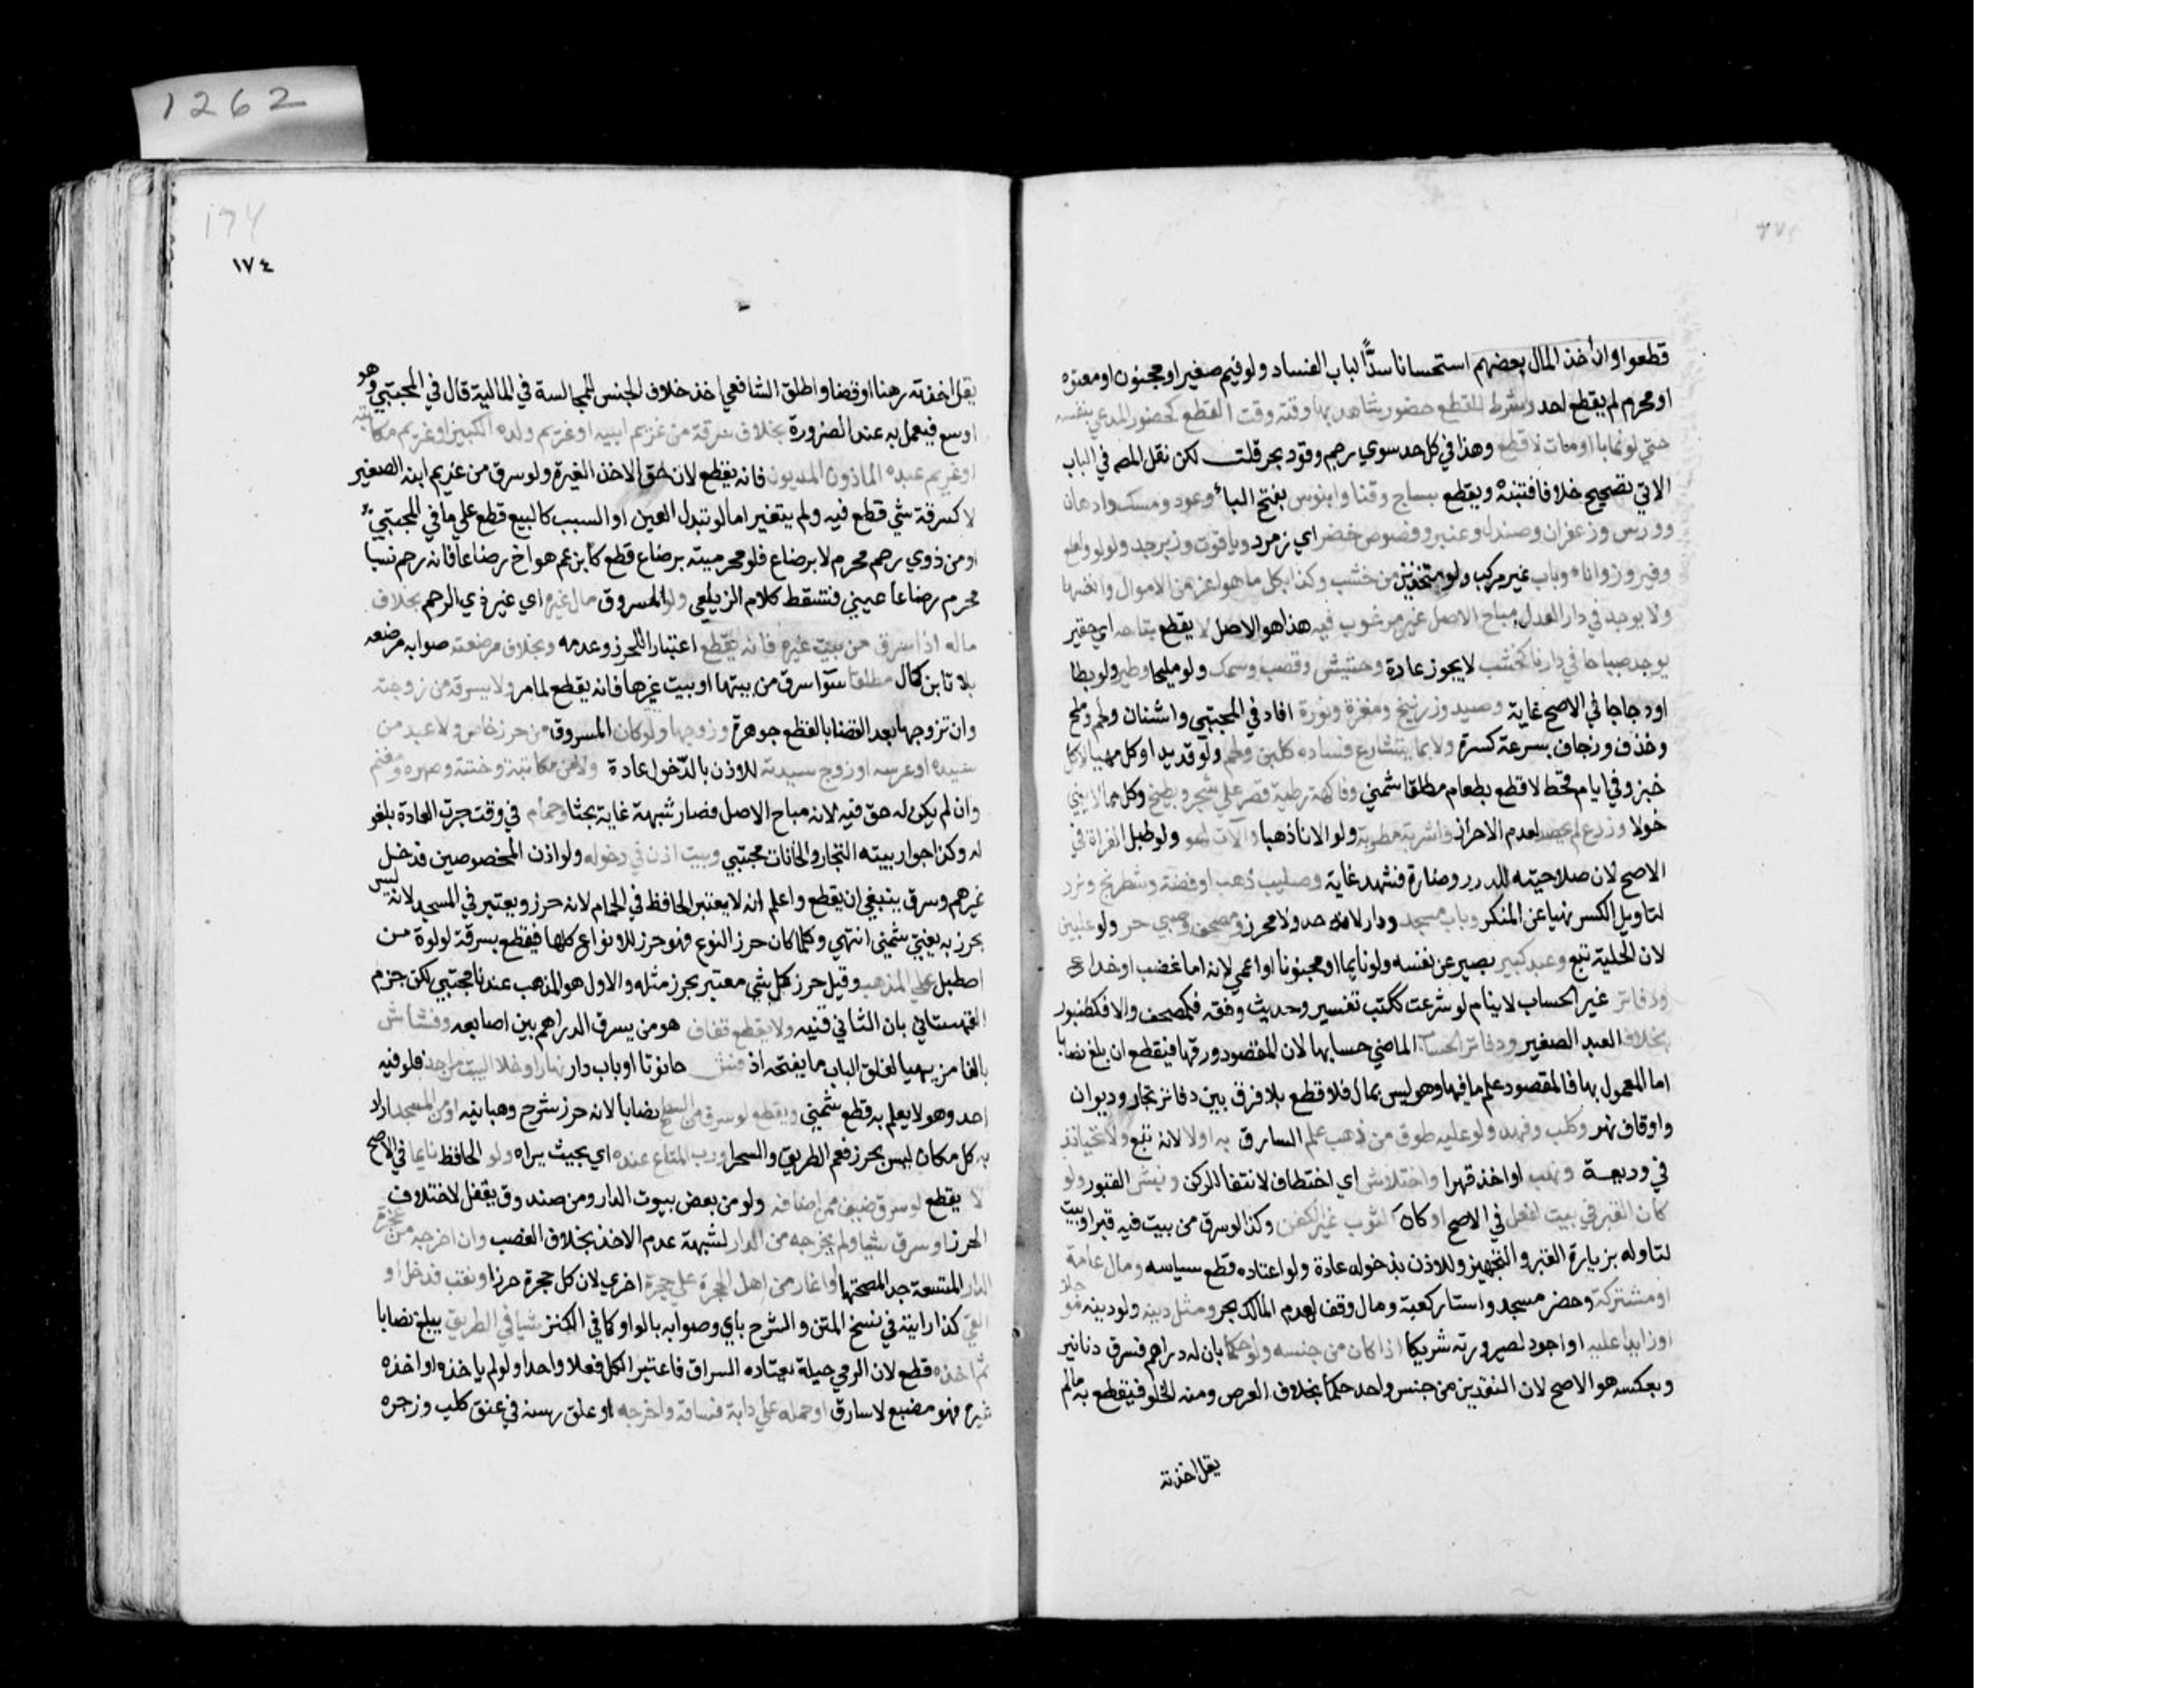 قطعوا وان أخذ المال بعضهم استحسانا سدًّا لباب الفساد ولو فيهم صغير او مجنون او معتوه
او محرم لم يقطع احد وشرط للقطع حضور شاهديها وقته وقت القطع كحضور المدعي بنفسه
حتي لو غابا او ماتا لا قطع وهذا في كل حد سوي رجم وقود بحر قلت لكن نقل المصـ في الباب
الاتي تصحيح خلافه فتنبه ويقطع بساج وقنا وابنوس بفتح الباء وعود ومسك وادهان
وورس وزعفران وصندل وعنبر وفصوص خضر اي زمرد وياقوت وزبرجد ولولو ولعل
وفيروزج واناء وباب غير مركب ولو متخذين من خشب وكذا بكل ما هو اعز من الاموال وانفسها
ولا يوجد في دار العدل مباح الاصل غير مرغوب فيه هذا هو الاصل لا يقطع بتافه اي حقير
يوجد مباحا في دارنا كخشب لا يحرز عادة وحشيش وقصب وسمك ولو مليحا وطير ولو بطا
او دجاجا في الاصح غاية وصيد وزرنيخ ومغرة ونورة افاد في المجتبي واشنان وفحم وملح
وخذف وزجاج بسرعة كسره ولا بما يتسارع فساده كلبن ولحم ولو قديدا وكل مهيا لاكل
خبز وفي ايام قحط لا قطع بطعام مطلقا شمني وفاكهة رطبة وثمر علي شجر وبطيخ وكل ما لا يبقي
حولا وزرع لم يحصد لعدم الاحراز واشربة مطربة ولو الانا ذهبا والات لهو ولو طبل الغزاة في
الاصح لان صلاحيته للهو صارت شبهة غاية وصليب ذهب او فضة وشطرنج ونرد
لتاويل الكسر نهيا عن المنكر وباب مسجد ودار لانه حرز لا محرز ومصحف وصبي حر ولو محليين
لان الحلية تبع وعبد كبير يعبر عن نفسه ولو نايما او مجنونا او اعمي لانه اما غصب او خداع
ودفاتر غير الحساب لانها لو شرعية ككتب تفسير وحديث وفقه فكمصحف والا فكطنبور
بخلاف العبد الصغير ودفاتر الحساب الماضي حسابها لان المقصود ورقها فيقطع ان بلغ نصابا
اما المعمول بها فالمقصود علم ما فيها وهو ليس بمال فلا قطع بلا فرق بين دفاتر تجار وديوان
واوقاف نهر وكلب وفهد ولو عليه طوق من ذهب علم السارق به اولا لانه تبع ولا بخيانة
في وديعة ونهب او اخذ قهرا واختلاس اي اختطاف لانتفا الركن ونبش القبور ولو
كان القبر في بيت مقفل في الاصح او كان الثوب غير الكفن وكذا لو سرق من بيت فيه قبر او ميت
لتاوله بزيارة القبر والتجهيز وللاذن بدخوله عادة ولو اعتاده قطع سياسه ومال عامة
او مشتركة وحصر مسجد واستار كعبة ومال وقف لعدم المالك بحر ومثل دينه ولو دينه موجلا
او زايدا عليه او اجود لصيرورته شريكا اذا كان من جنسه ولو حكما بان له دراهم فسرق دنانير
وبعكسه هو الاصح لان النقدين من جنس واحد حكما بخلاف العرض ومنه الحلو فيقطع به مالم
يقل اخذته
1262
174
١٧٤
يقل اخذته رهنا او قضا واطلق الشافعي اخذ خلاف الجنس للمجانسة في المالية قال في المجتبي وهو
اوسع فيعمل به عند الضرورة بخلاف سرقة من غريم ابيه او غريم ولده الكبير او غريم مكاتبه
او غريم عبده الماذون المديون فانه يقطع لان حق الاخذ لغيره ولو سرق من غريم ابنه الصغير
لا كسرقة شي قطع فيه ولم يتغير اما لو تبدل العين او السبب كالبيع قطع علي ما في المجتبي
او من ذوي رحم محرم لا برضاع فلو محرميته برضاع قطع كابن عم هو اخ رضاعا فانه رحم نسبا
محرم رضاعا عيني فسقط كلام الزيلعي ولو المسروق مال غيره اي غير ذي الرحم بخلاف
ماله اذا سرق من بيت غيره فانه يقطع اعتبارا للحرز وعدمه وبخلاف مرضعته صوابه مرضعه
بلا تا ابن كمال مطلقا سوا سرق من بيتها او بيت غيرها فانه يقطع لما مر ولا بسرقة من زوجته
وان تزوجها بعد القضا بالقطع جوهرة وزوجها ولو كان المسروق من حرز خاص ولا عبد من
سيده او عرسه او زوج سيدته للاذن بالدخول عادة ولا من مكاتبة وختنه وصهره ومغنم
وان لم يكن له حق فيه لانه مباح الاصل فصار شبهة غاية بحثا وحمام في وقت جرت العادة بدخو
له وكذا حوانيت التجار والخانات مجتبي وبيت اذن في دخوله ولو اذن لمخصوصين فدخل
غيرهم وسرق ينبغي ان يقطع واعلم انه لا يعتبر الحافظ في الحمام لانه حرز ويعتبر في المسجد لانه ليس
بحرز به يفتي شمني انتهي وكلما كان حرز النوع فهو حرز للانواع كلها فيقطع بسرقة لولوة من
اصطبل علي المذهب وقيل حرز كل شي معتبر بحرز مثله والاول هو المذهب عندنا مجتبي لكن جزم
القهستاني بان الثاني فنبه ولا يقطع قفاف هو من يسرق الدراهم بين اصابعه وفشاش
بالفا من يهيا لغلق الباب ما يفتحه اذا فش حانوتا او باب دار نهارا وخلا البيت من احد فلو فيه
احد وهو لا يعلم به قطع شمني ويقطع لو سرق من السطح نصابا لانه حرز شرح وهبانيه او من المسجد اراد
به كل مكان ليس بحرز فعم الطريق والصحرا ورب المتاع عنده اي بحيث يراه ولو الحافظ نايما في الاصح
لا يقطع لو سرق ضيف ممن اضافه ولو من بعض بيوت الدار ومن صندوق يقفل لاختلاف
الحرز او سرق شيا ولم يخرجه من الدار لشبهة عدم الاخذ بخلاف الغصب وان اخرجه من حجرة
الدار المتسعة جدا لصحنها او اغار من اهل الحجرة علي حجرة اخري لان كل حجرة حرز او نقب فدخل او
القي كذا رايته في نسخ المتن والشرح باي وصوابه بالواو كما في الكنز شيا في الطريق يبلغ نصابا
ثم اخذه قطع لان الرمي حيلة يعتاده السراق فاعتبر الكل فعلا واحدا ولو لم ياخذه او اخذه
غيره فهو مضيع لا سارق او حمله علي دابة فساقه واخرجه او علق رسنه في عنق كلب وزجره